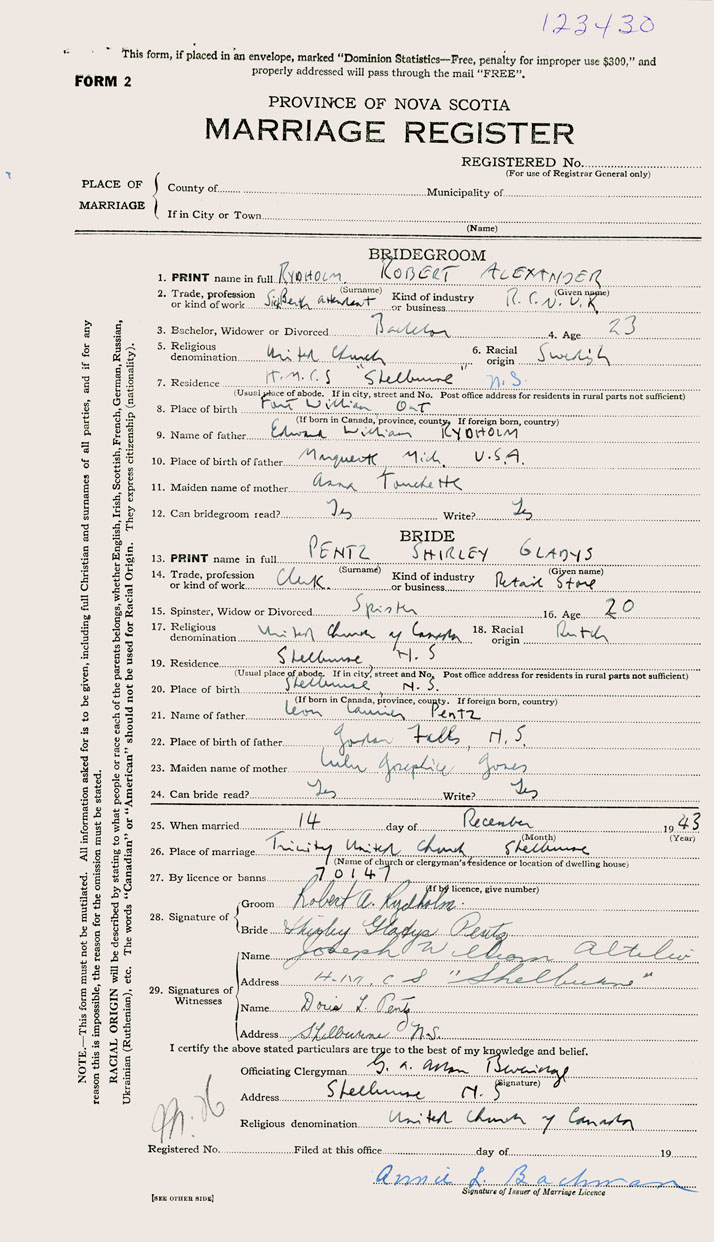 123430
This form, if placed in an envelope, marked "Dominion Statistics—Free, penalty for improper use $300," and
properly addressed will pass through the mail "FREE".
FORM 2
PROVINCE OF NOVA SCOTIA
MARRIAGE REGISTER
REGISTERED No.
(For use of Registrar General only)
PLACE OF MARRIAGE
County of Municipality of
If in City or Town
(Name)
BRIDEGROOM
1. PRINT name in full RYDHOLM ROBERT ALEXANDER
(Surname) (Given name)
2. Trade, profession or kind of work Sick Berth attendant Kind of industry or business R.C.N.V.R
3. Bachelor, Widower or Divorced Bachelor 4. Age 23
5. Religious denomination United Church 6. Racial origin Swedish
7. Residence H.M.C.S "Shelburne" N.S.
(Usual place of abode. If in city, street and No. Post office address for residents in rural parts not sufficient)
8. Place of birth Fort William Ont
(If born in Canada, province, county. If foreign born, country)
9. Name of father Edward William RYDHOLM
10. Place of birth of father Marquette Mich. U.S.A.
11. Maiden name of mother Anna Touchette
12. Can bridegroom read? Yes Write? Yes
BRIDE
13. PRINT name in full PENTZ SHIRLEY GLADYS
(Surname) (Given name)
14. Trade, profession or kind of work Clerk. Kind of industry or business Retail Store
15. Spinster, Widow or Divorced Spinster 16. Age 20
17. Religious denomination United Church of Canada 18. Racial origin Dutch
19. Residence Shelburne, N.S
(Usual place of abode. If in city, street and No. Post office address for residents in rural parts not sufficient)
20. Place of birth Shelburne N.S.
(If born in Canada, province, county. If foreign born, country)
21. Name of father Leon Laurier Pentz
22. Place of birth of father Jordan Falls, N.S.
23. Maiden name of mother Lulu Josephine
24. Can bride read? Yes Write? Yes
25. When married 14 day of December 1943
(Month) (Year)
26. Place of marriage Trinity United Church Shelburne
(Name of church or clergyman's residence or location of dwelling house)
27. By licence or banns 70147
(If by licence, give number)
28. Signature of
Groom Robert A. Rydholm.
Bride Shirley Gladys Pentz
29. Signatures of Witnesses
Name Joseph William
Address H.M.C.S "Shelburne"
Name Doris L. Pentz
Address Shelburne N.S.
I certify the above stated particulars are true to the best of my knowledge and belief.
Officiating Clergyman G.
(Signature)
Address Shelburne N.S
Religious denomination United Church of Canada
Registered No. Filed at this office day of 19
Annie L. Bachman
Signature of Issuer of Marriage Licence
[SEE OTHER SIDE]
NOTE.—This form must not be mutilated. All information asked for is to be given, including full Christian and surnames of all parties, and if for any
reason this is impossible, the reason for the omission must be stated.
RACIAL ORIGIN will be described by stating to what people or race each of the parents belongs, whether English, Irish, Scottish, French, German, Russian,
Ukrainian (Ruthenian), etc. The words "Canadian" or "American" should not be used for Racial Origin. They express citizenship (nationality).